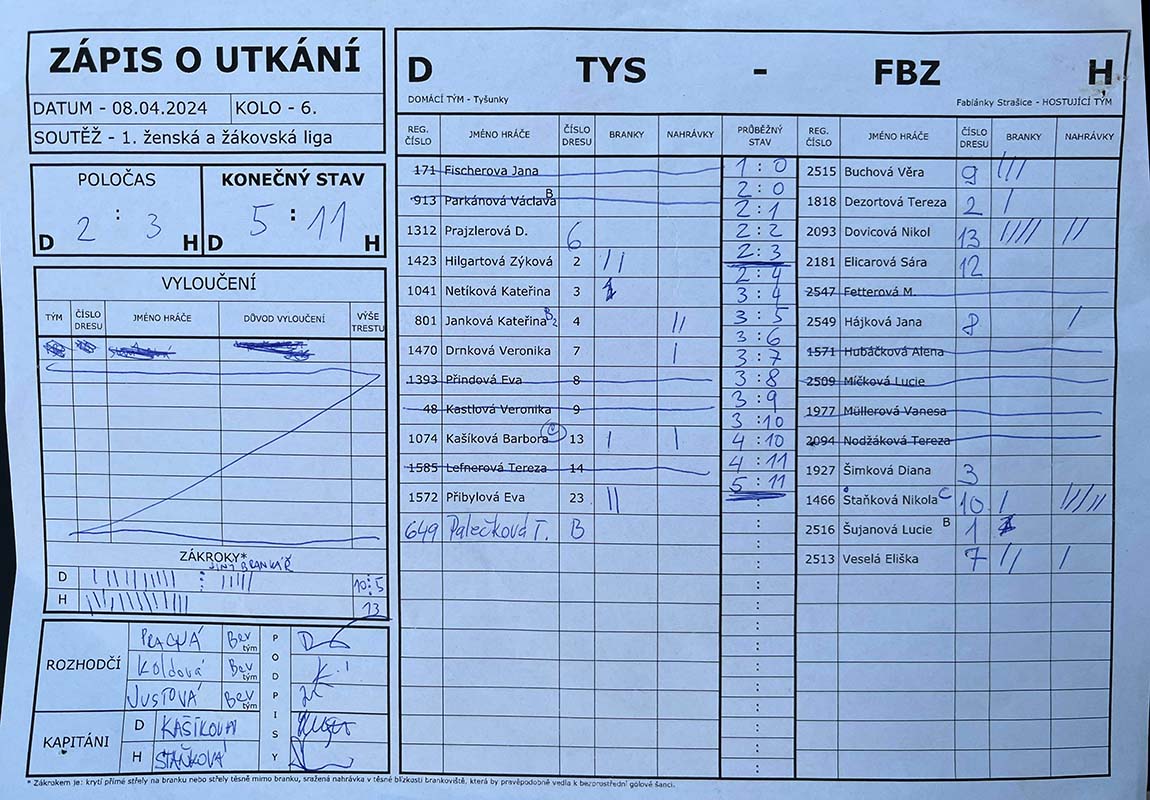 ZÁPIS O UTKÁNÍ
DATUM - 08.04.2024 KOLO - 6.
SOUTĚŽ - 1. ženská a žákovská liga
POLOČAS KONEČNÝ STAV
D 2 : 3 H D 5 : 11 H
VYLOUČENÍ
TÝM ČÍSLO DRESU JMÉNO HRÁČE DŮVOD VYLOUČENÍ VÝŠE TRESTU
ZÁKROKY*
JINÝ BRANKÁŘ
D 10:5
H 13
ROZHODČÍ
PRACNÁ Bev tým
Koldová Bev tým
JUSTOVÁ Bev tým
PODPISY
KAPITÁNI
D KAŠÍKOVÁ
H STAŇKOVÁ
D TYS - FBZ H
DOMÁCÍ TÝM - Tyšunky Fablánky Strašice - HOSTUJÍCÍ TÝM
REG. ČÍSLO JMÉNO HRÁČE ČÍSLO DRESU BRANKY NAHRÁVKY PRŮBĚŽNÝ STAV REG. ČÍSLO JMÉNO HRÁČE ČÍSLO DRESU BRANKY NAHRÁVKY
171 Fischerova Jana
913 Parkánová Václava B
1312 Prajzlerová D. 6
1423 Hilgartová Zýková 2 //
1041 Netíková Kateřina 3
801 Janková Kateřina B2 4 //
1470 Drnková Veronika 7 /
1393 Přindová Eva 8
48 Kastlová Veronika 9
1074 Kašíková Barbora C 13 / /
1585 Lefnerová Tereza 14
1572 Přibylová Eva 23 //
649 Palečková T. B
1 : 0
2 : 0
2 : 1
2 : 2
2 : 3
2 : 4
3 : 4
3 : 5
3 : 6
3 : 7
3 : 8
3 : 9
3 : 10
4 : 10
4 : 11
5 : 11
2515 Buchová Věra 9 ///
1818 Dezortová Tereza 2 /
2093 Dovicová Nikol 13 //// //
2181 Elicarová Sára 12
2547 Fetterová M.
2549 Hájková Jana 8 /
1571 Hubáčková Alena
2509 Míčková Lucie
1977 Müllerová Vanesa
2094 Nodžáková Tereza
1927 Šimková Diana 3
1466 Štaňková Nikola C 10 / /////
2516 Šujanová Lucie B 1
2513 Veselá Eliška 7 // /
* Zákrokem je: krytí přímé střely na branku nebo střely těsně mimo branku, sražená nahrávka v těsné blízkosti brankoviště, která by pravěpodobně vedla k bezprostřední gólové šanci.